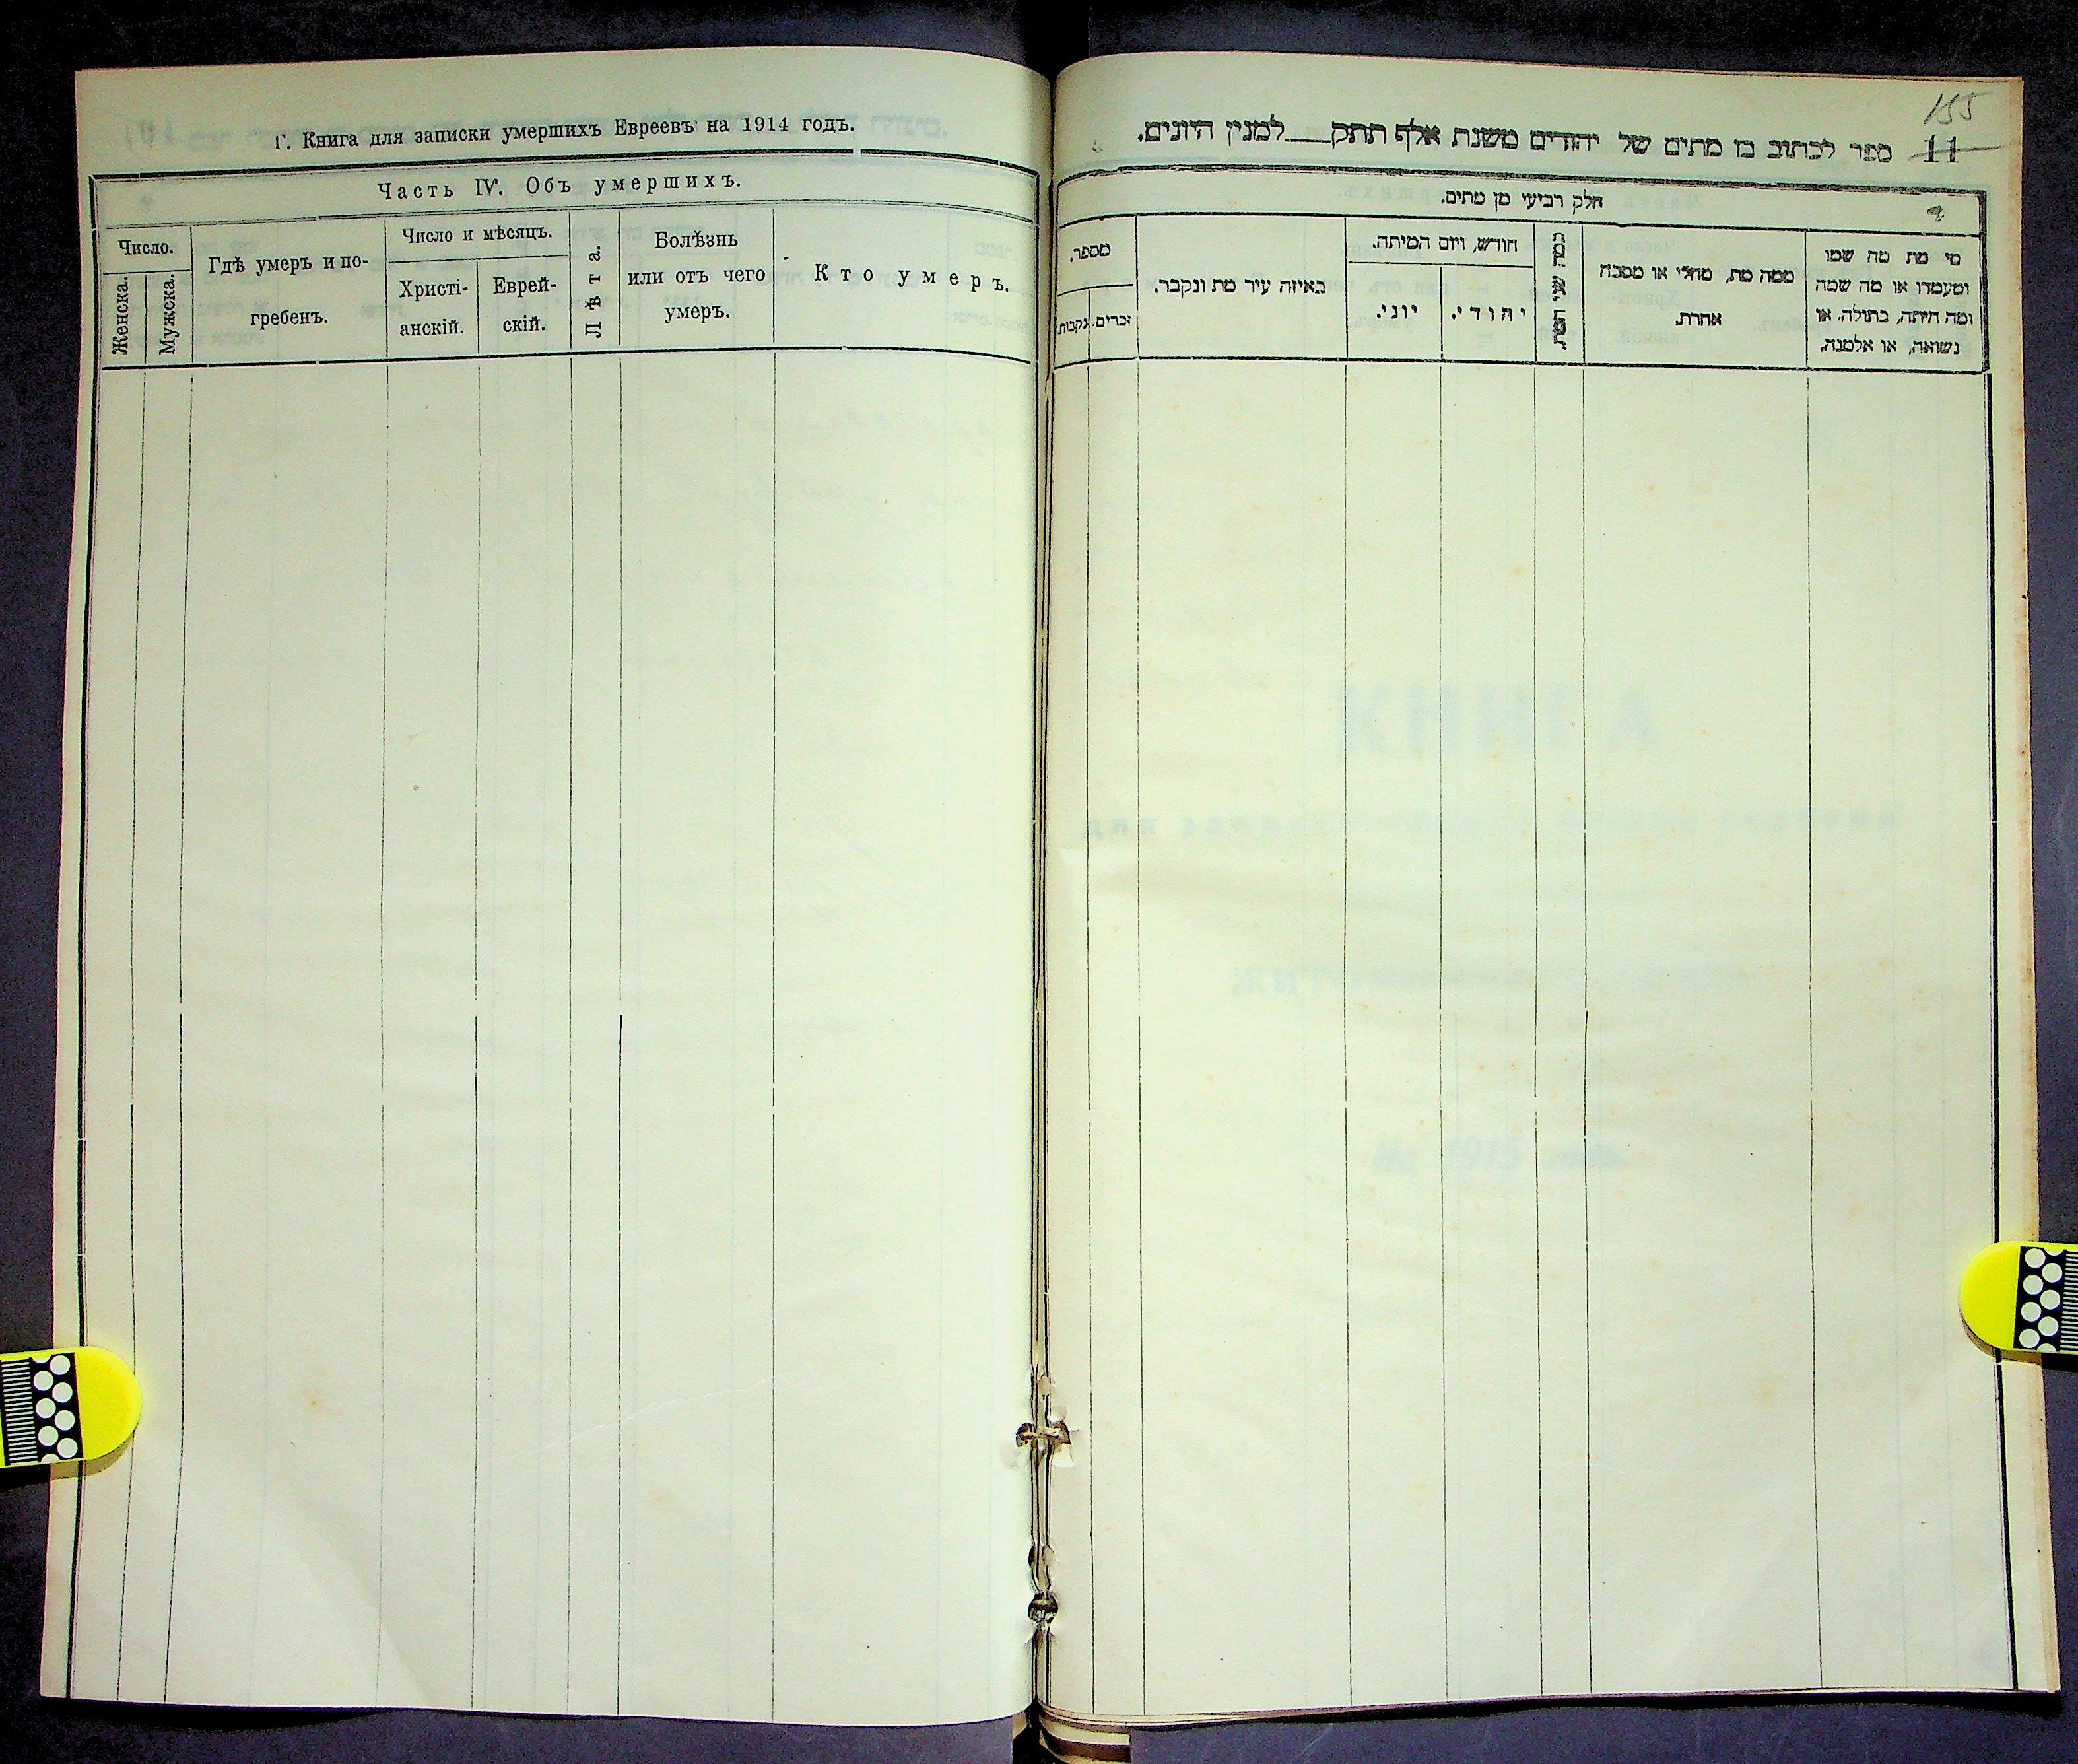 Г. Книга для записки умершихъ Евреевъ на 1914 годъ.
Часть IV. Объ умершихъ.
Число.
Женска.
Мужска.
Гдѣ умеръ и по-
гребенъ.
Число и мѣсяцъ.
Христі-
анскій.
Еврей-
скій.
Лѣта.
Болѣзнь
или отъ чего
умеръ.
Кто умеръ.
155
11
ספר לכתוב בו מתים של יהודים משנת אלף תתק___למנין היונים.
חלק רביעי מן מתים.
מי מת מה שמו
ומעמדו או מה שמה
ומה היתה, בתולה, או
נשואה, או אלמנה.
ממה מת, מחלי או מסבה
אחרת.
כמה שני המת
חודש, ויום המיתה.
יהודי.
יוני.
באיזה עיר מת ונקבר.
מספר.
זכרים.
נקבות.
КНИГА
На 1915 годъ.